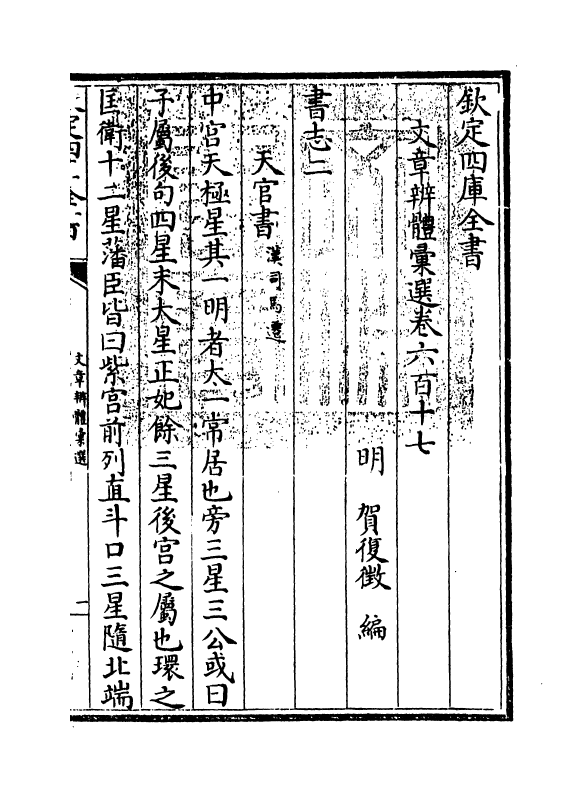 欽定四庫全書
文章辨體彙選卷六百十七
明 賀復徵 編
書志二
天官書 漢司馬遷
中宫天極星其一明者太一常居也旁三星三公或曰
子屬後句四星末大星正妃餘三星後宫之屬也環之
匡衛十二星藩臣皆曰紫宫前列直斗口三星隨北端
文章辨體彙選